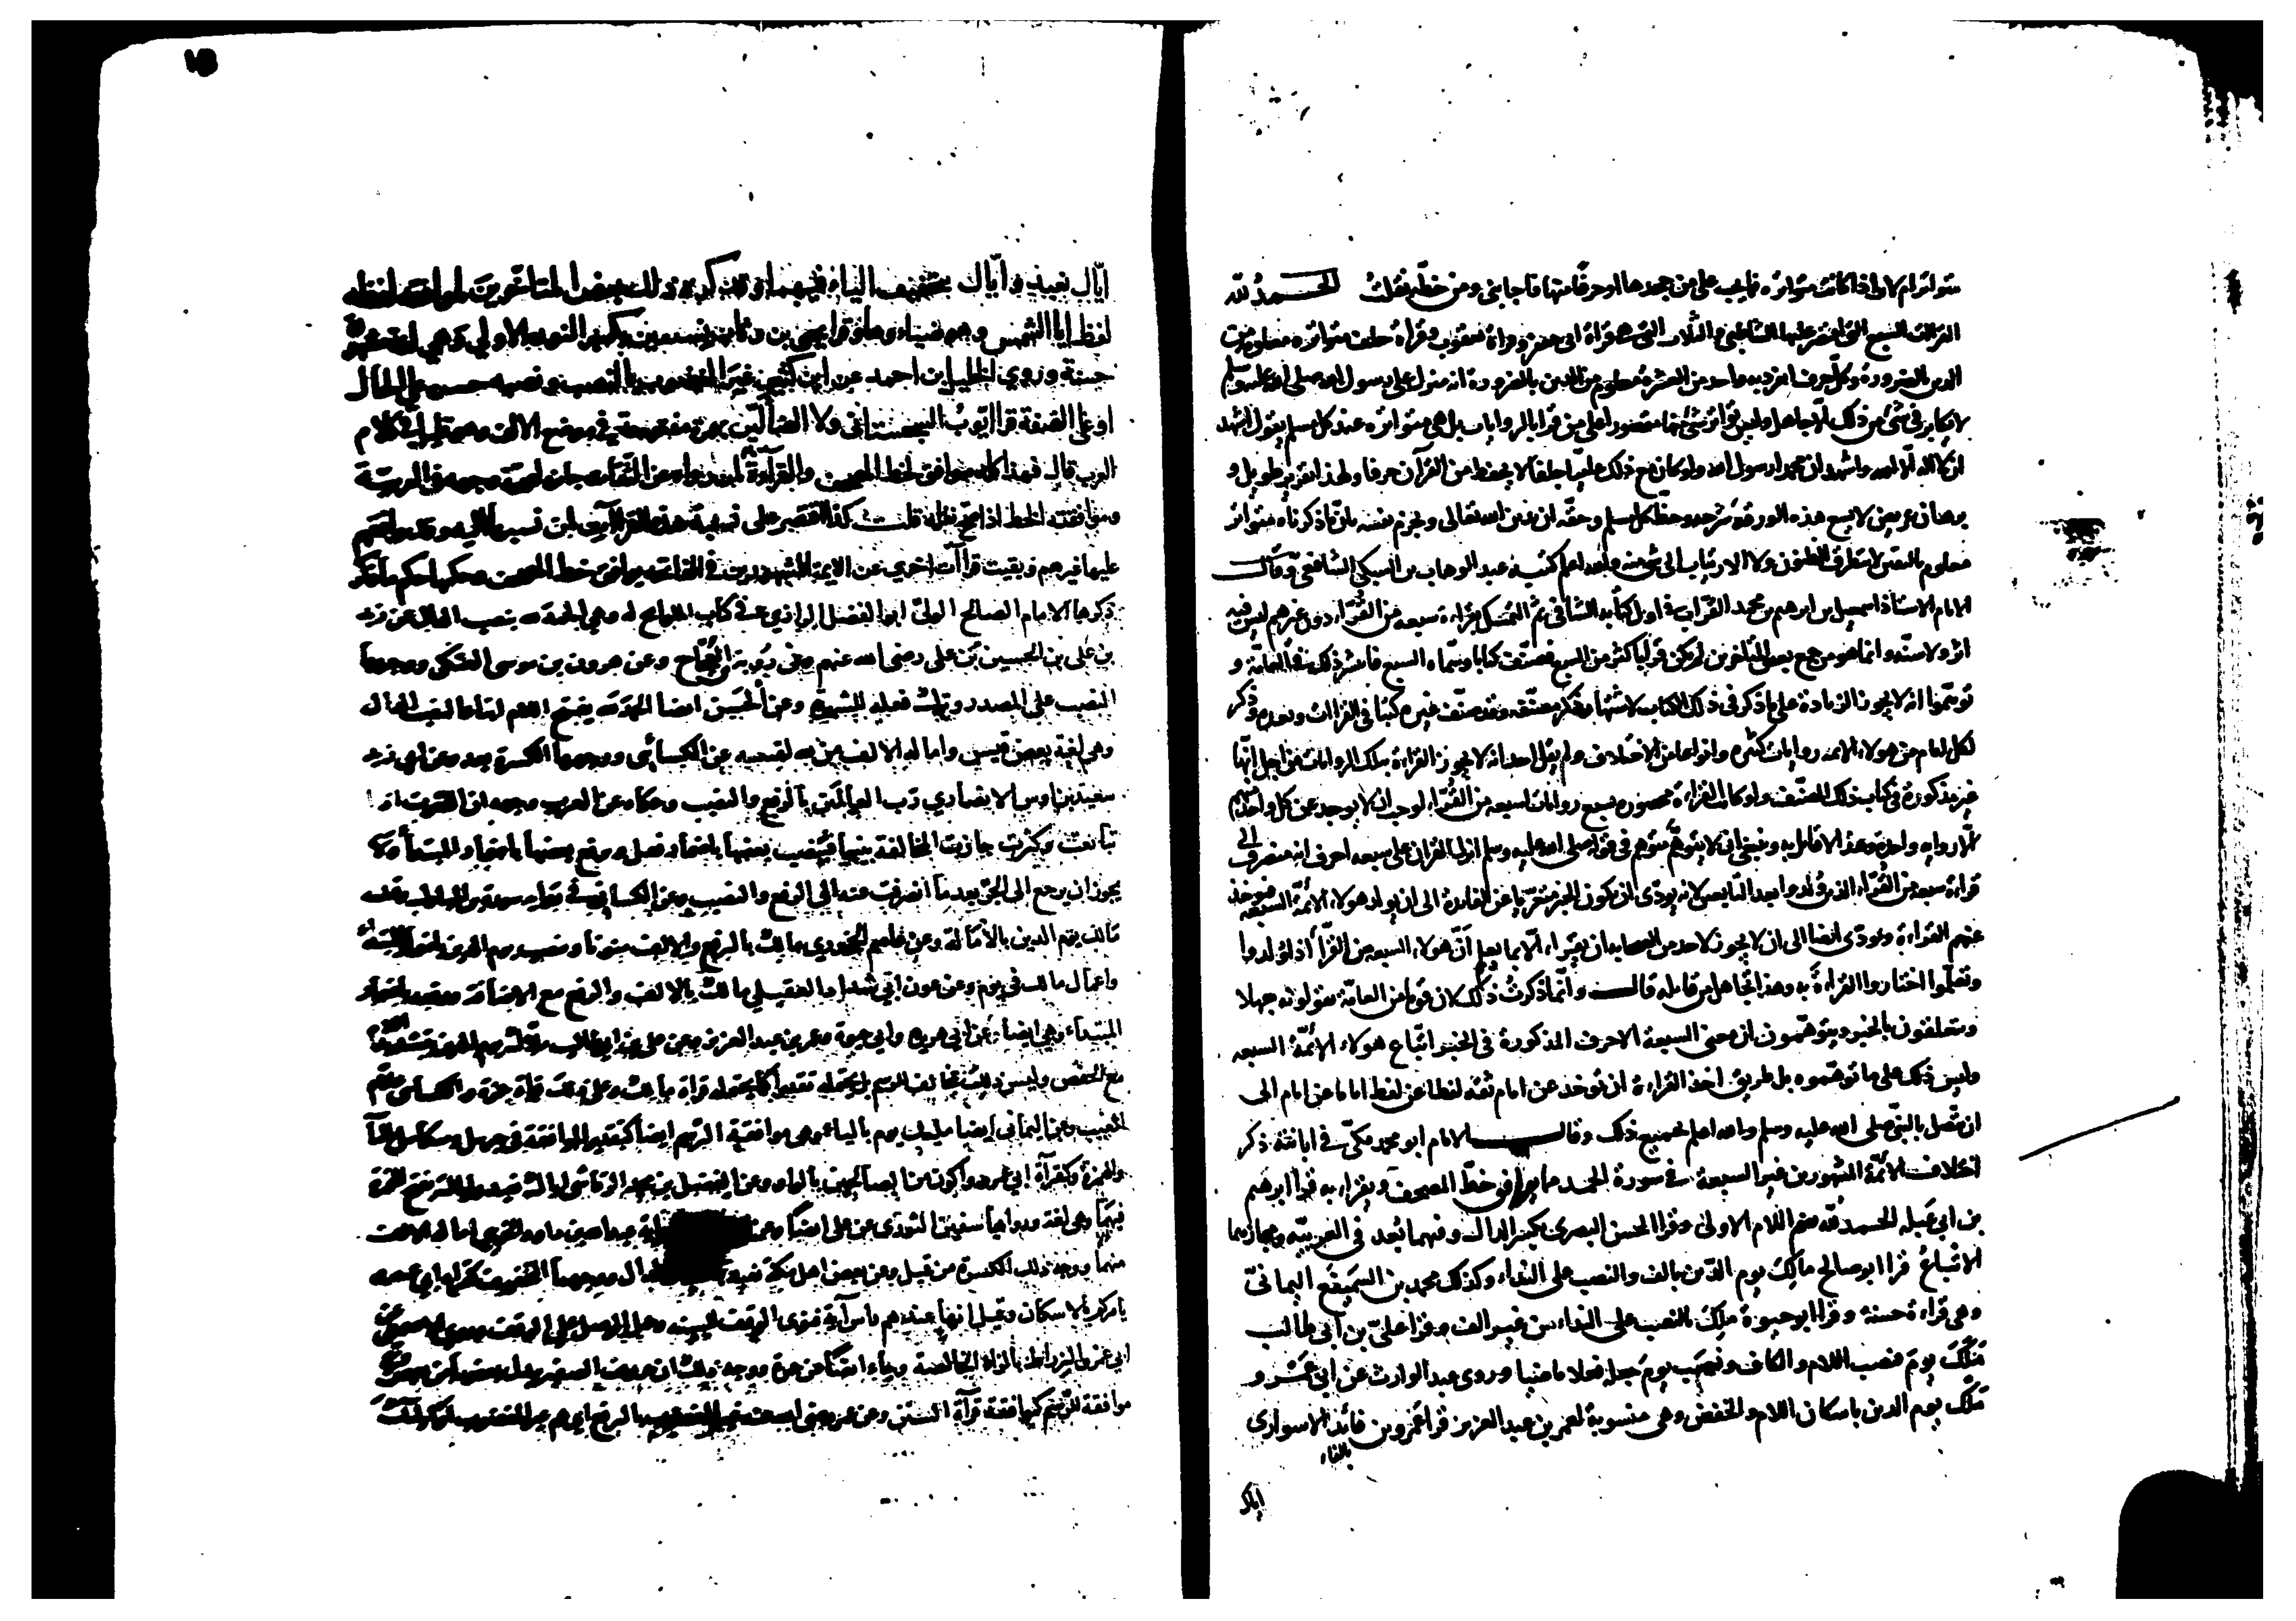 متواترة ام لا واذا كانت متواترة فما يجب على من جحدها او حرفا منها فاجابني ومن خطه نقلت الحمد لله
القراآت السبع التي اقتصر عليها الشاطبي والثلاث التي هي قراة ابي جعفر وقراة يعقوب وقراة خلف متواترة معلومة من
الدين بالضرورة وكل حرف انفرد به واحد من العشرة معلوم من الدين بالضرورة انه منزل على رسول الله صلى الله عليه وسلم
لا يكابر في شئ من ذلك الا جاهل وليس تواتر شئ منها مقصورا على من قرا بالروايات بل هي متواترة عند كل مسلم يقول اشهد
ان لا اله الا الله واشهد ان محمدا رسول الله ولو كان مع ذلك عاميا جلفا لا يحفظ من القرآن حرفا ولهذا تقرير طويل و
برهان عريض لا يسع هذه الورقة شرحه وحظ كل مسلم وحقه ان يدين الله تعالى ويجزم نفسه بان ما ذكرناه متواتر
معلوم باليقين لا يتطرق الظنون ولا الارتياب الى شئ منه والله اعلم كتبه عبد الوهاب بن السبكي الشافعي وقال
الامام الاستاذ اسمعيل بن ابرهيم بن محمد القراب في اول كتابه الشافي ثم التمسك بقراءة سبعة من القراء دون غيرهم ليس فيه
اثر ولا سنة وانما هو من جمع بعض المتأخرين لم يكن قرا باكثر من السبع فصنف كتابا وسماه السبع فانتشر ذلك في العامة و
توهموا انه لا يجوز الزيادة على ما ذكر في ذلك الكتاب لاشتهار ذكر مصنفه وقد صنف غيره كتبا في القراات وبعده وذكر
لكل امام من هولاء الائمه روايات كثيره وانواعا من الاختلاف ولم يقل احد انه لا يجوز القراءة بتلك الروايات من اجل انها
غير مذكورة في كتاب ذلك المصنف ولو كانت القراءة محصورة بسبع روايات لسبعه من القراء لوجب ان لا يوجد عن كل واحد منهم
الا رواية واحدة وهذا لا قائل به وينبغي ان لا يتوهم متوهم في قوله صلى الله عليه وسلم انزل القران على سبعه احرف انه منصرف الى
قراءة سبعه من القراء الذين ولدوا بعد التابعين لانه يودى ان يكون الخبر متعريا عن الفائدة الى ان يولد هولاء الائمة السبعه فيوخذ
عنهم القراءة ويودى ايضا الى ان لا يجوز لاحد من الصحابه ان يقراء الا بما يعلم ان هولاء السبعه من القرا اذا ولدوا
وتعلموا اختاروا القراءة به وهذا تجاهل من قائله قال وانما ذكرت ذلك لان قوما من العامة يقولونه جهلا
ويتعلقون بالخبر ويتوهمون ان معنى السبعة الاحرف المذكورة في الخبر اتباع هولاء الائمة السبعه
وليس ذلك على ما توهموه بل طريق اخذ القراءة ان توخذ عن امام ثقه لفظا عن لفظ اماما عن امام الى
ان يتصل بالنبي صلى الله عليه وسلم والله اعلم بجميع ذلك وقال الامام ابو محمد مكي في ابانته ذكر
اختلاف الائمة المشهورين غير السبعة في سورة الحمد مما يوافق خط المصحف ويقراء به قرا ابرهيم
بن ابي عبله الحمد لله بضم اللام الاولى وقرا الحسن البصرى بكسر الدال وفيهما بعد في العربيه ومجازهما
الاتباع قرا ابو صالح مالك يوم الدين بالف والنصب على النداء وكذلك محمد بن السميفع اليماني
وهي قراءة حسنة وقرا ابو حيوة ملك بالنصب على النداء من غير الف وقرا علي بن ابي طالب
ملك يوم فنصب اللام والكاف ونصب يوم جعله فعلا ماضيا وروى عبد الوارث عن ابي عمرو
ملك يوم الدين باسكان اللام والخفض وهي منسوبة لعمر بن عبد العزيز قرا عمرو بن فائد الاسوارى
بالفاء
اياك
اياك نعبد واياك بتخفيف الياء فيهما وقد كره ذلك بعض المتاخرين لموافقه لفظه
لفظ ايا الشمس وهو ضياءوها وقرا يحيى بن وثاب نستعين بكسر النون الاولى وهي لغة مشهورة
حسنة وروى الخليل ابن احمد عن ابن كثير غير المغضوب بالنصب ونصبه حسن على الحال
او على الصفة قرا ايوب السجستاني ولا الضالين بهمزة مفتوحة في موضع الالف وهو قليل في كلام
العرب قال فهذا كله موافق لخط المصحف والقراءة لمن رواه عن الثقات جائزة لصحة وجهه في العربية
وموافقته الخط اذا صح نقله قلت كذا اقتصر على نسبة هذه القراآت لمن نسبها اليه وقد وافقهم
عليها غيرهم وبقيت قراآت اخرى عن الائمة المشهورين في الفاتحة يوافق خط المصحف وحكمها حكم ما ذكر
ذكرها الامام الصالح الولى ابو الفضل الرازي في كتاب اللوامح له وهي الحمد لله بنصب الدال عن زيد
بن على بن الحسين بن على رضى الله عنهم وعن روبة بن العجاج وعن هرون بن موسى العتكى ووجهها
النصب على المصدر وترك فعله للشهرة وعن الحسن ايضا الحمد لله بفتح اللام اتباعا لنصب الدال
وهي لغة بعض قيس وامالة الالف من لله لقتيبه عن الكسائى ووجهها الكسرة بعد وعن ابي زيد
سعيد بن اوس الانصاري رب العالمين بالرفع والنصب وحكاه عن العرب ووجهه ان النعوت اذا
تتابعت وكثرت جازت المخالفة بينها فينصب بعضها باضمار فعل ويرفع بعضها باضمار المبتدأ ولا
يجوز ان يرجع الى الجر بعد ما انصرفت عنه الى الرفع والنصب وعن الكسائى في رواية
مالك يوم الدين بالامالة وعن عاصم الجحدري مالك بالرفع والالف منونا ونصب يوم الدين باضمار المبتداء
واعمال مالك في يوم وعن عون ابي شداد العقيلي مالك بالالف والرفع مع الاضافة ورفعه باضمار
المبتداء وهي ايضا عن ابي هريرة وابي حيوة وعمر بن عبد العزيز وعن على بن ابي طالب ملاك يوم الدين بتشديد اللام
مع الخفض وليس ذلك بمخالف للرسم بل يحتمله تقديرا كما يحتمله قراة مالك وعلى ذلك قراة حمزة والكسائى علام
الغيب وعن اليماني ايضا مليك يوم بالياء وهي موافقة للرسم ايضا كتقدير الموافقة في جبريل وميكائيل بالياء
والهمزة وكقراة ابي عمرو واكون من الصالحين بالواو وعن الفضل بن محمد الرقاشي اياك نعبد واياك بفتح الهمزة
فيهما وهي لغة ورواها سفين الثورى عن على ايضا وعن
منهما ووجه ذلك الكسرة من قبل وعن بعض اهل مكة نعبد باسكان الدال ووجهها التخفيف كقراءة ابي عمرو
يامركم بالاسكان وقيل انها عندهم راس آية فنوى الوقف للسنه وحمل الوصل على الوقف
موافقة للرسم كموافقة قراة السين وعن عمر رضى الله عنه غير المغضوب بالرفع اى هم غير المغضوب